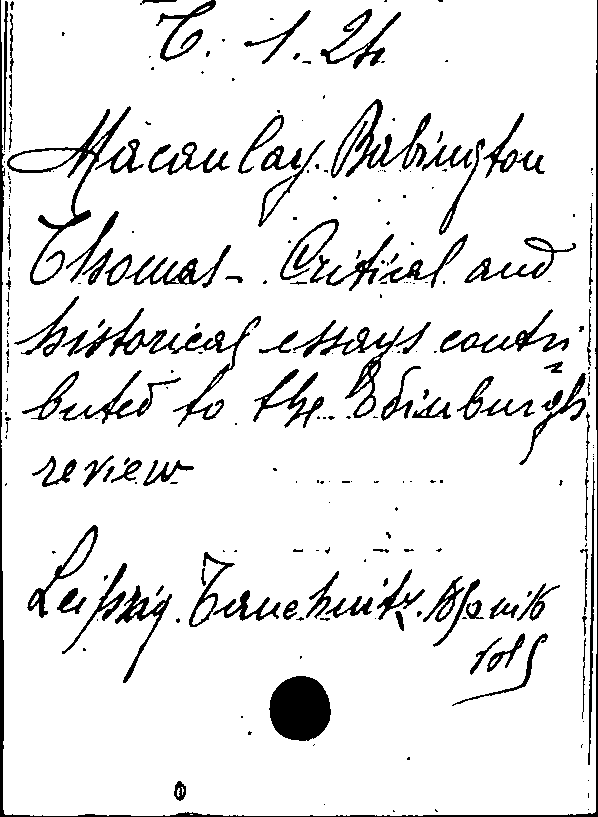 T. 1. 24
Macaulay. Babington
Thomas - Critical and
historical essays contri
buted to the Edinburgh
review
Leipzig. Tauchnitz.